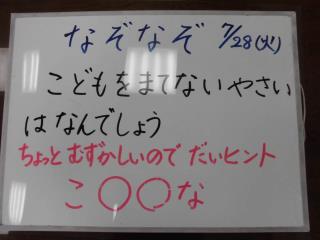 なぞなぞ 7/28(火)
こどもをまてないやさい
はなんでしょう
ちょっとむずかしいので だいヒント
こ〇〇な